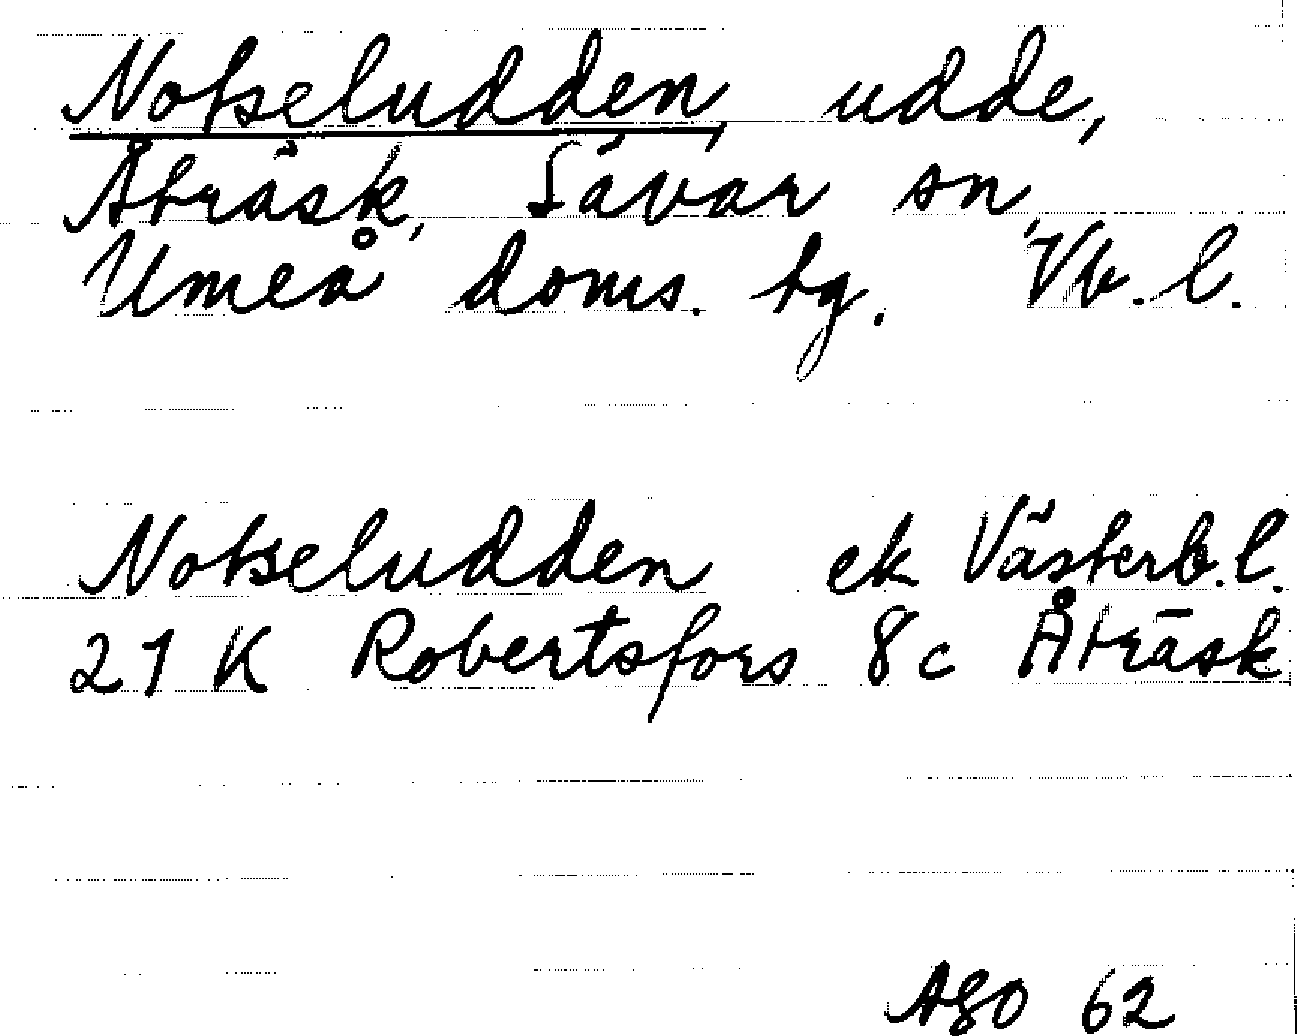 Notseludden, udde,
Åträsk, Sävar sn,
Umeå doms. tg. Vb. l.
Notseludden ek Västerb. l.
21 K Robertsfors 8c Åträsk
AGO 62